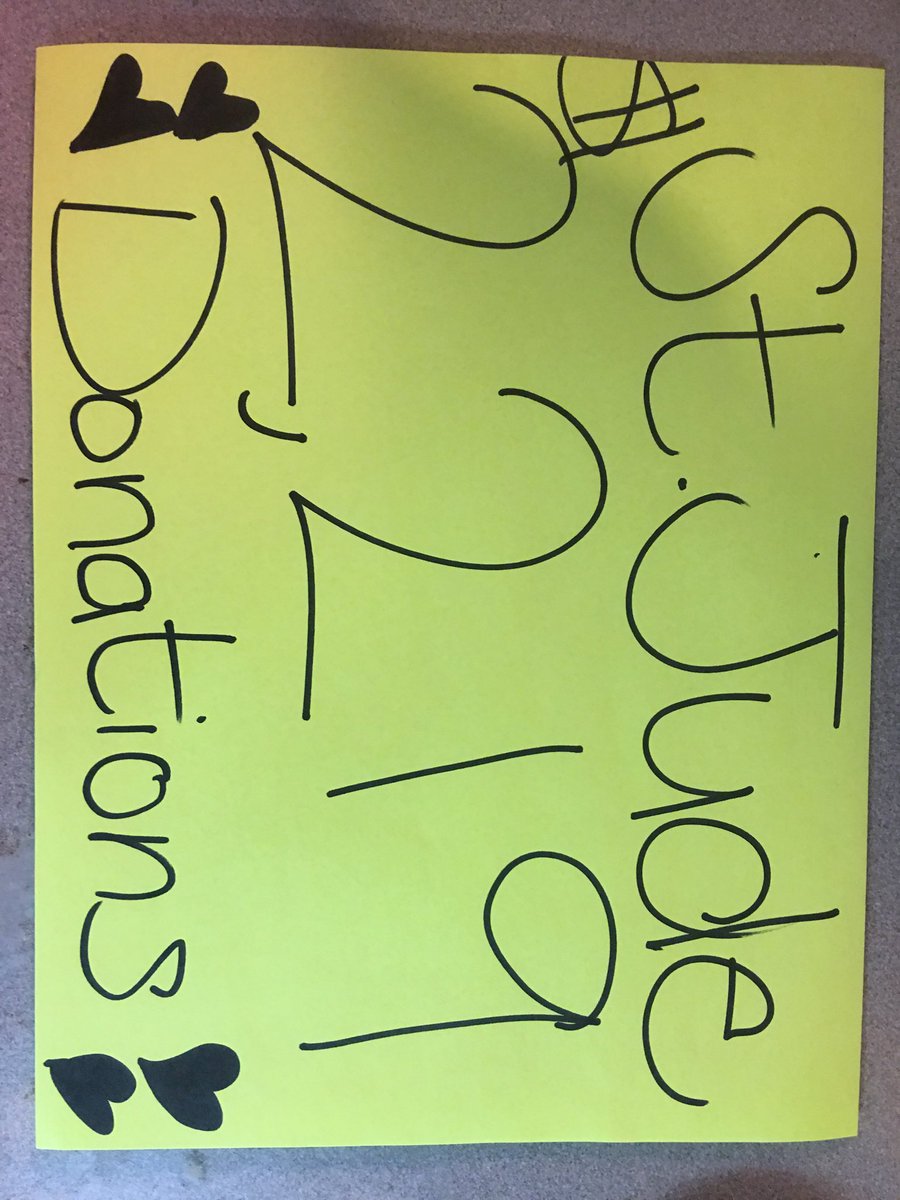 St. Jude
$2,219
Donations